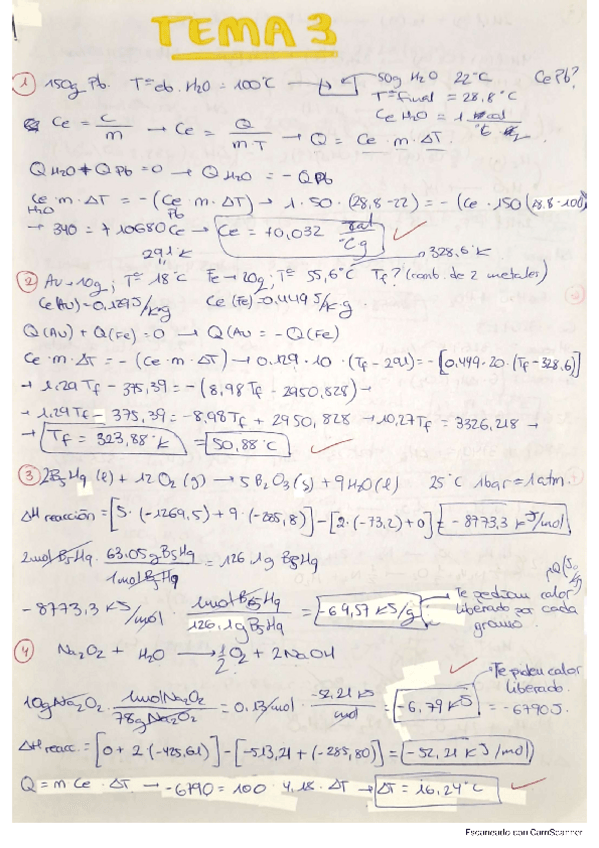 TEMA 3
① 150g Pb. Tª eb. H2O = 100°C → 50g H2O 22°C Ce Pb?
Tª final = 28.8°C
Ce H2O = 1
Ce = C/m → Ce = Q/m·T → Q = Ce · m · ΔT.
Q H2O + Q Pb = 0 → Q H2O = - Q Pb
Ce H2O · m · ΔT = - (Ce Pb · m · ΔT) → 1 · 50 · (28,8-22) = - (Ce · 150 (28.8-100))
→ 340 = + 10680 Ce → Ce = +0,032 cal/°C g
291°K 328,6°K
② Au → 10g ; Tª 18°C Fe → 20g ; Tª 55,6°C Tf? (comb. de 2 metales)
Ce (Au) = 0,129 J/K·g Ce (Fe) = 0,449 J/K·g
Q (Au) + Q (Fe) = 0 → Q (Au = - Q (Fe)
Ce · m · ΔT = - (Ce · m · ΔT) → 0,129 · 10 · (Tf - 291) = - [0,449 · 20 · (Tf - 328,6)]
→ 1.29 Tf - 375,39 = - (8,98 Tf - 2950,828) →
→ 1.29 Tf - 375,39 = -8,98 Tf + 2950,828 → 10,27 Tf = 3326,218 →
→ Tf = 323,88°K = 50,88°C
③ 2B5H9 (l) + 12 O2 (g) → 5 B2O3 (s) + 9 H2O (l) 25°C 1bar = 1atm.
ΔH reacción = [5 · (-1269,5) + 9 · (-285,8)] - [2 · (-73,2) + 0] = - 8773,3 kJ/mol
2mol B5H9 · 63.05g B5H9 / 1mol B5H9 = 126.1g B5H9
- 8773,3 kJ/mol · 1mol B5H9 / 126,1g B5H9 = -69,57 kJ/g → Te pedían calor liberado por cada gramo.
④ Na2O2 + H2O → 1/2 O2 + 2NaOH
Te piden calor liberado.
10g Na2O2 · 1mol Na2O2 / 78g Na2O2 = 0.13/mol · -52,21 kJ / mol = -6,79 kJ = -6790J.
ΔH reacc. = [0 + 2 (-425,61)] - [-513,21 + (-285,80)] = -52,21 kJ/mol)
Q = m Ce · ΔT → -6790 = 100 · 4.18 · ΔT → ΔT = 16,24°C
Escaneado con CamScanner